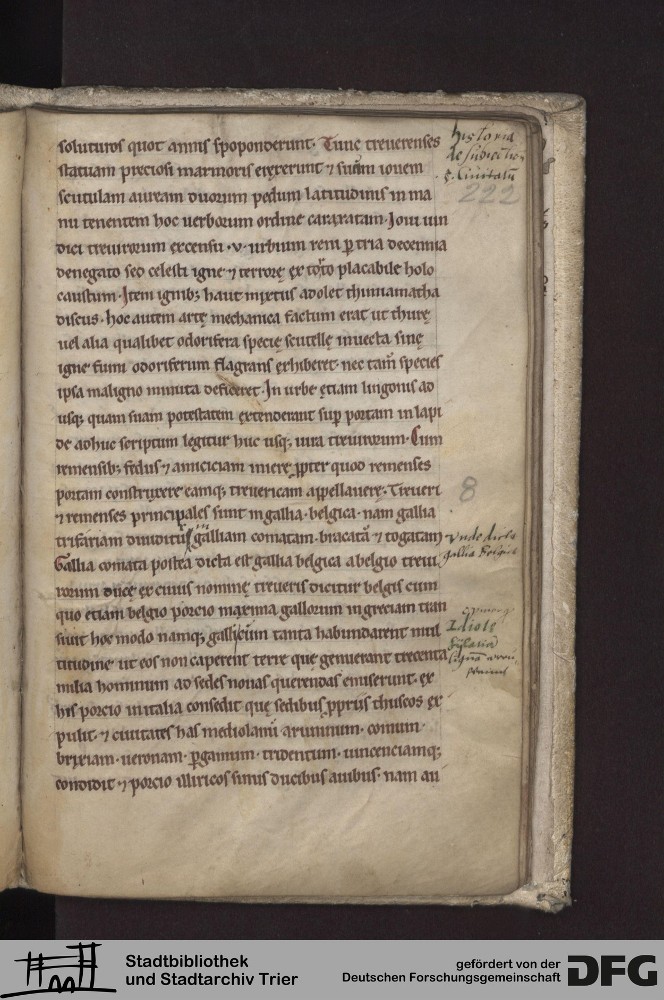 soluturos quot annis spoponderunt. Tunc treuerenses
statuam preciosi marmoris erexerunt & suam iouem
scutulam auream duorum pedum latitudinis in ma
nu tenentem hoc uerborum ordine cararatam. Ioui uin
dici treuirorum ex censu .v. urbium rem p tria decennia
denegato sed celesti igne & terrore ex toto placabile holo
caustum. Item ignib; haut mixtus adolet thimiamatha
discus. hoc autem artę mechanica factum erat ut thurę
uel alia qualibet odorifera specię scutellę inuecta sinę
igne fumi odoriferum flagrans exhiberet. nec tam species
ipsa maligno minuta deficeret. In urbe etiam lingonis ad
usq; quam suam potestatem extenderant sup portam in lapi
de adhuc scriptum legitur huc usq; iura treuirorum. Cum
remensib; fedus & amiciciam iniere ppter quod remenses
portam construxere eamq; treuericam appellauere. Treueri
& remenses principales sunt in gallia belgica. nam gallia
trifariam diuiditur galliam comatam. bracata & togatam
Gallia comata postea dicta est gallia belgica a belgio treui
rorum duce ex cuius nomine treueris dicitur belgis cum
quo etiam belgio porcio maxima gallorum in greciam tran
siuit hoc modo namq; gallicum tanta habundarent mul
titudine ut eos non caperent terre que genuerant trecenta
milia hominum ad sedes nouas querendas emiserunt. ex
his porcio in italia consedit que sedibus ppriis thuscos ex
pulit & ciuitates has mediolani ariminum. comum.
brixiam. ueronam. pgamum. tridentum. uincenciamq;
condidit & porcio illiricos sinus ducibus auibus. nam au
historia
222
8
vnde dicta
gallia Belgica
Stadtbibliothek
und Stadtarchiv Trier
gefördert von der
Deutschen Forschungsgemeinschaft
DFG